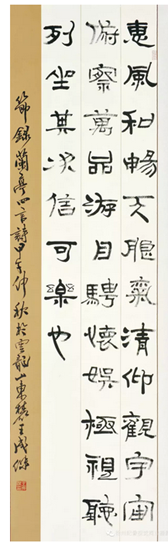 惠風和暢天朗氣清仰觀宇宙
俯察萬品游目騁懷娛極視聽
列坐其次信可樂也
節錄蘭亭四言詩甲午仲秋於雲龍山東